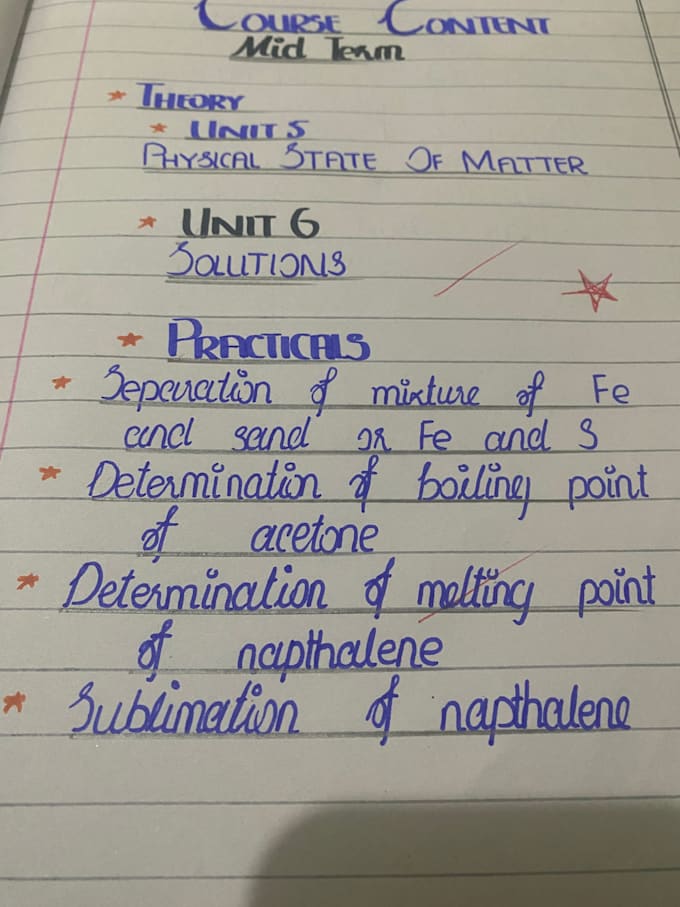 COURSE CONTENT
Mid Term
* THEORY
* UNIT 5
PHYSICAL STATE OF MATTER
* UNIT 6
SOLUTIONS
* PRACTICALS
* Separation of mixture of Fe
and sand or Fe and S
* Determination of boiling point
of acetone
* Determination of melting point
of napthalene
* Sublimation of napthalene